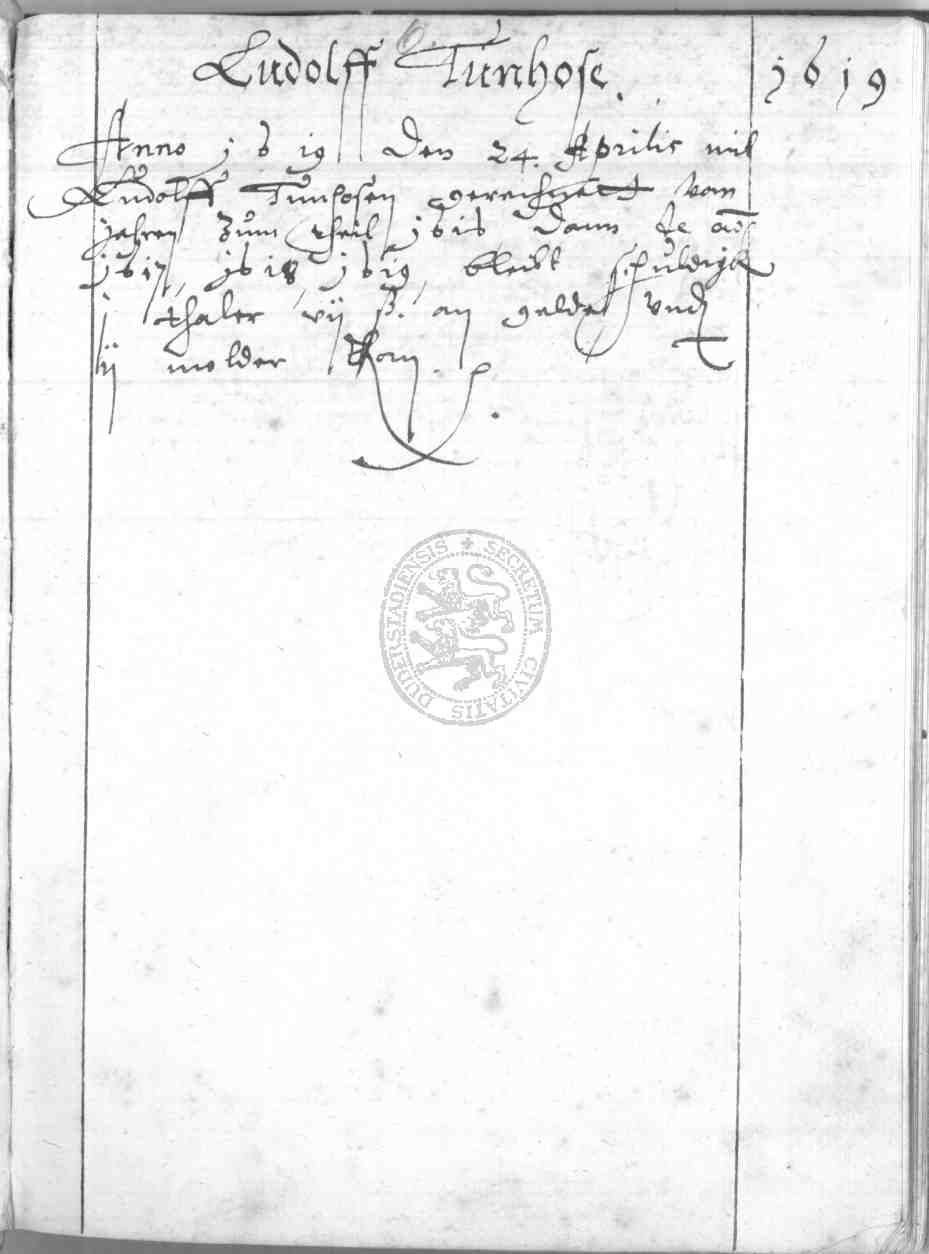 Ludolff Tunhose. 1619
Anno 1619 den 24. Aprilis mit
Ludolff Tunhosen gerechnett vom
Jahren zum theil 1616 dann
1617, 1618, 1619, bleibt schuldigk
j thaler vij ß. an gelde und
ij molder
SECRETUM CIVITATIS DUDERSTADIENSIS